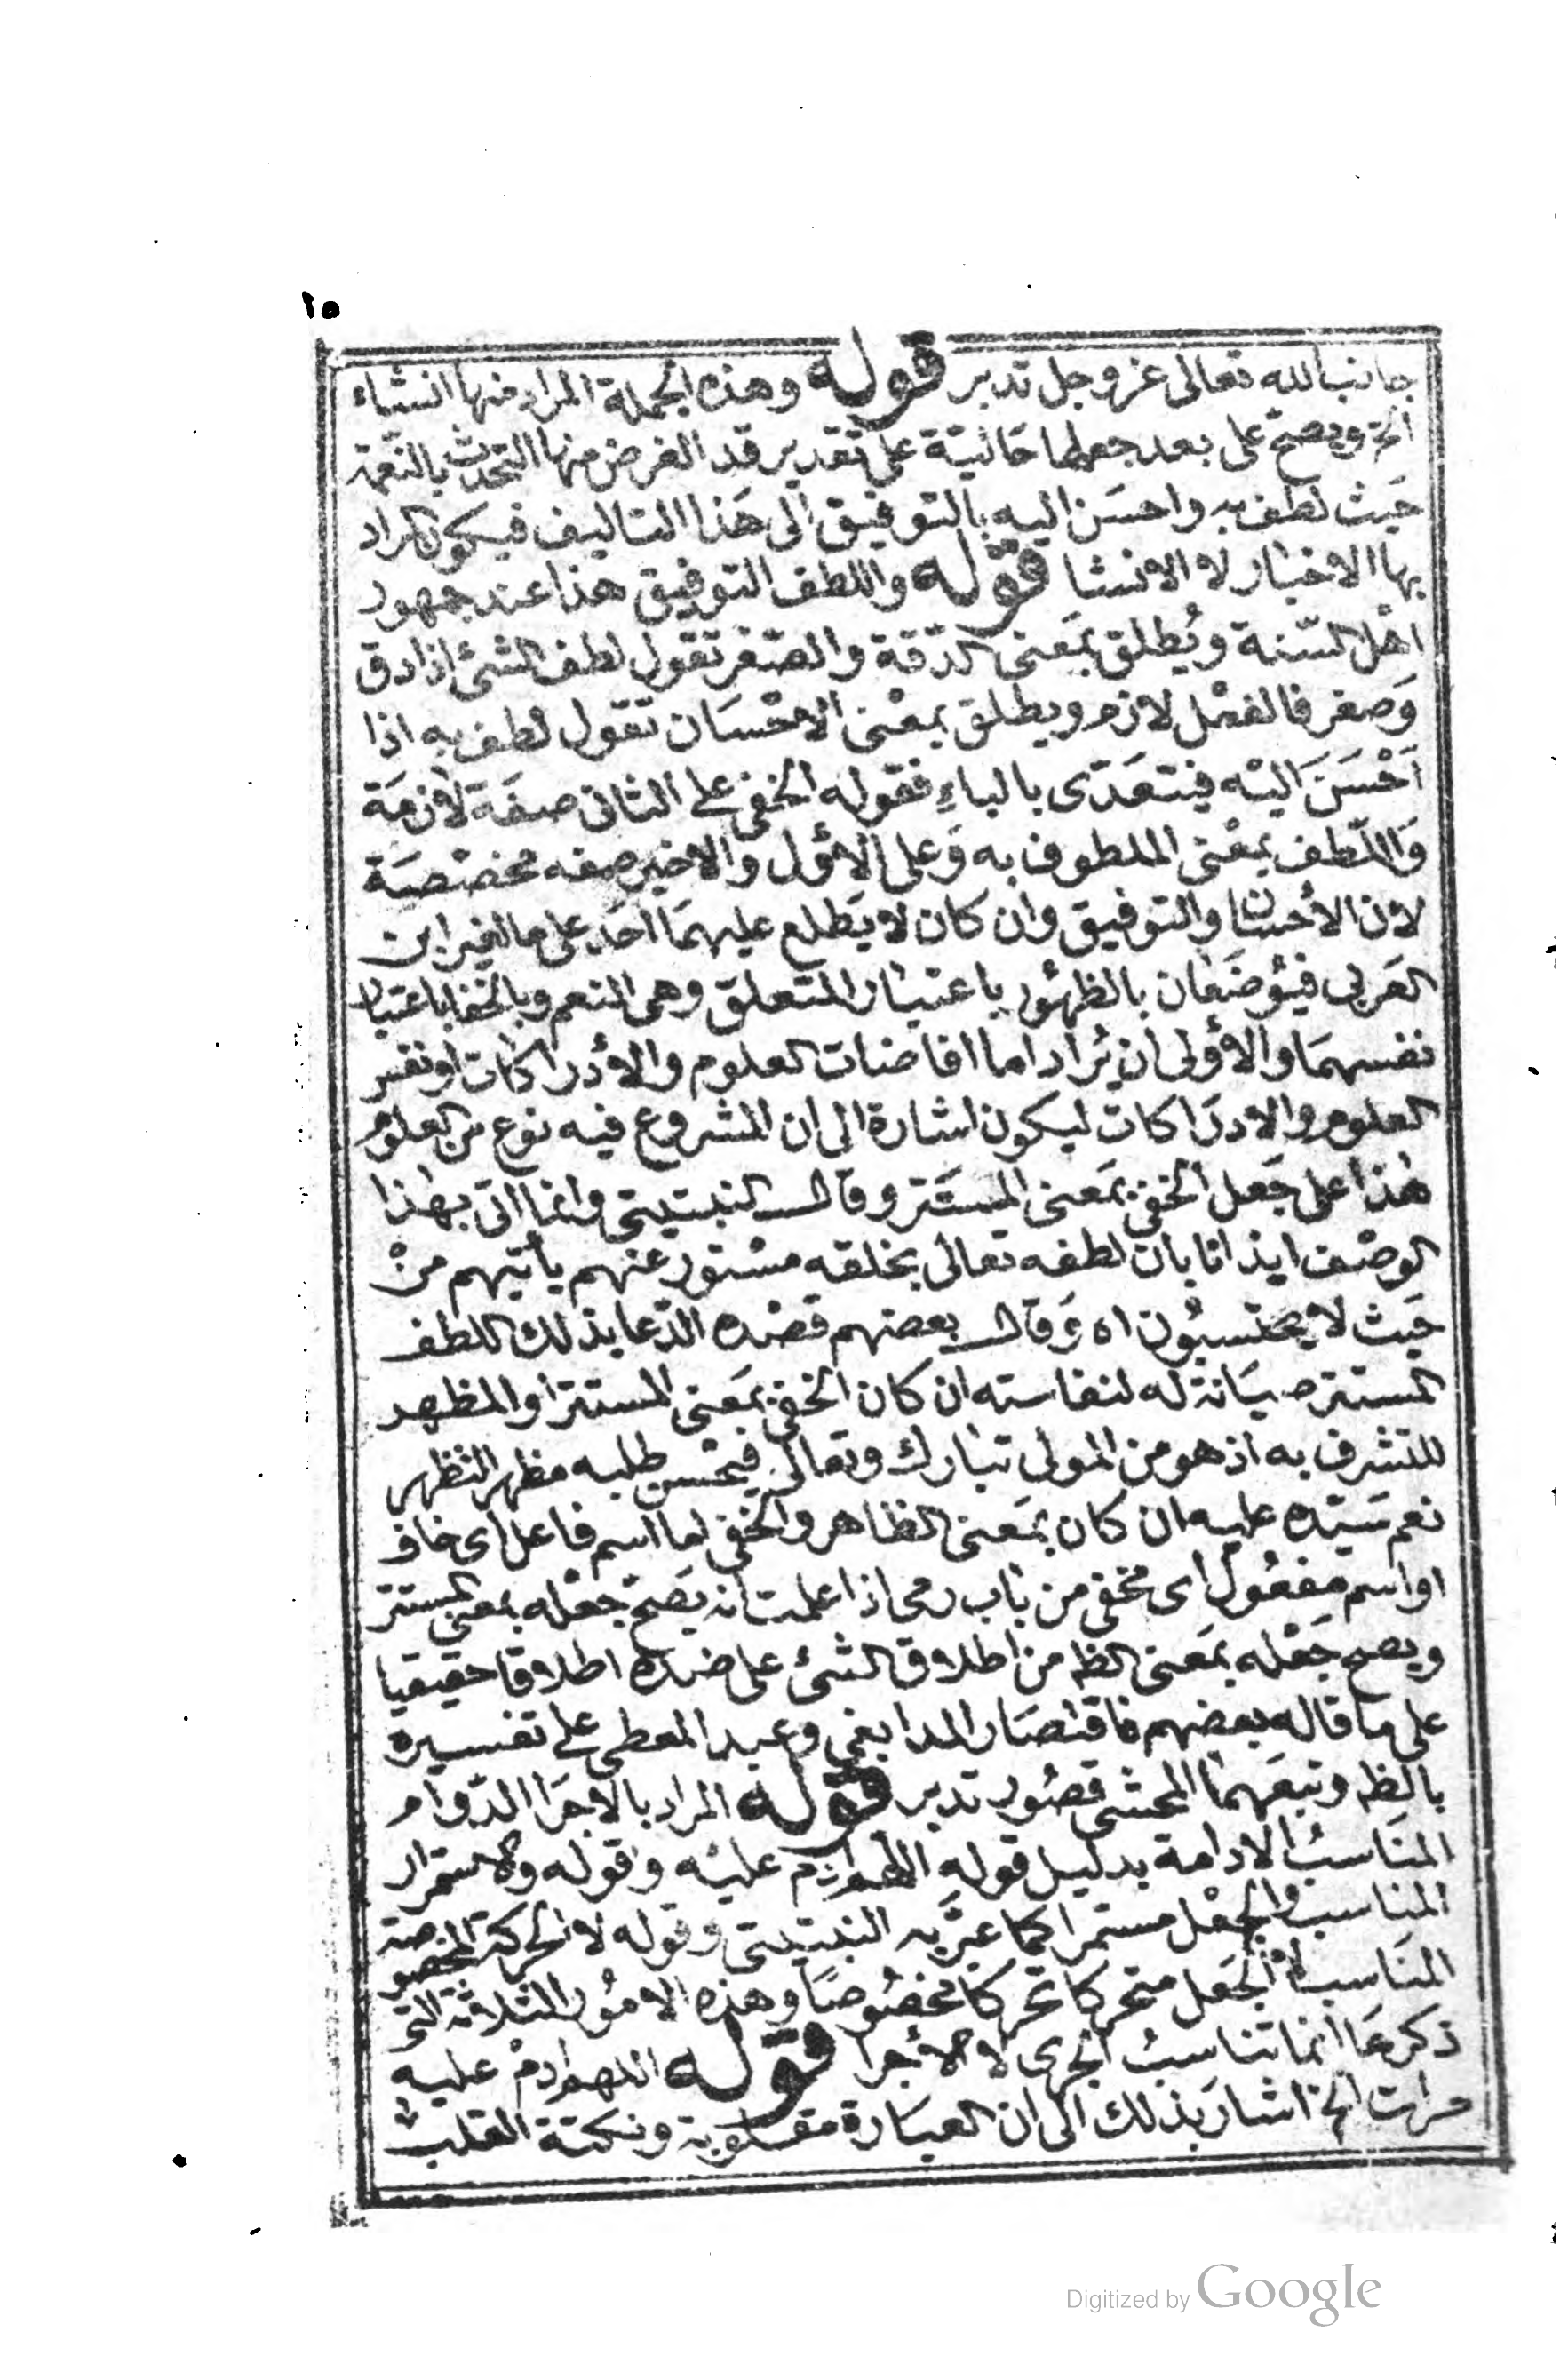 ١٥
جانب الله تعالى عز وجل تدبر قوله وهذه الجملة المراد منها انشاء
الخ ويصح على بعد جعلها حَاليّة على تقدير قد الغرض منها التحدث بالنعمة
حَيث لطف به واحسَن اليه بالتوفيق الى هَذا التاليف فيكون المراد
بها الاخبار لا الانشا قوله واللطف التوفيق هذا عند جمهور
اهْل السّنة ويُطلق بمَعنى الدّقة والصّغر تقول لطف الشئ اذا دق
وَصغر فالفعْل لازم ويطلق بمعْنى الاحْسَان تقول لطف به اذا
اَحْسَنَ اليْه فيتعَدّى بالباءِ فقوله الخفى على الثانى صفَة لازمَة
وَاللّطف بمعْنى الملطوف به وَعلى الاوّل والاخير صفه مخصّصَة
لان الاحسان والتوفيق وان كان لا يَطلع عليهمَا احَد على ما لابن
العَربى فيوُصَفان بالظهُور باعتبار المتعلق وهى النعم وبالخفا باعتبار
نفسهمَا والاولى ان يُراد اما افاضات العلوم والادراكات او نفس
العلوم والادرَاكات ليكون اشارة الى ان المشروع فيه نوع من العلوم
هٰذا على جَعل الخفى بمَعنى المستَتر وقال النبتيتى وانما اتى بهٰذا
الوصْف ايذانا بان لطفه تعالى بخلقه مسْتور عنهم ياتيهم منْ
حَيث لا يحتسبُون اه وَقال بعضهم قصْده الدّعا بذلك اللطف
المستتر صيَانة له لنفاسته ان كان الخفى بمَعنى المستتر او المظهر
للتشرف به اذ هو من المولى تبارك وتعالى فيحْسن طلبه مظهر النظهر
نعم سَيّده عليه ان كان بمَعنى الظاهر والخفى اما اسم فاعل اى خاف
او اسم مفعُول اى مخفى من باب رمى اذا علمت انه يَصح جعْله بمعنى المستتر
ويصح جَعْله بمَعنى الظه من اطلاق الشئ على ضده اطلاقا حقيقيا
على مَا قاله بعضهم فاقتصَار المدابغى وعبد المعطى على تفسيره
بالظه وتبعَهمَا المحشى قصُور تدبر قوله المراد بالاجرَا الدّوام
المنَاسبُ الادامة بدليل قوله اللهم ادم عليْه وقوله والاستمرار
المنَاسب والجعْل مستمرا كما عبّر به النبتيتى وقوله لا الحركة المخصوصة
المنَاسب لا الجَعل متحركا تحركا مخصُوصًا وهذه الامُور الثلاثة التى
ذكرهَا انما تناسبُ الجرى لا الاجرا قوله اللهم ادمْ عليه
مرات الخ اشارَ بذلك الى ان العبَارة مقلوبة ونكتة القلب
Digitized by Google